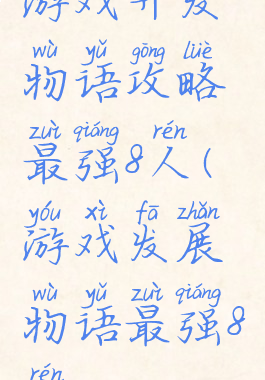 游戏开发
wù yǔ gōng lüè
物语攻略
zuì qiáng rén
最强8人(
yóu xì fā zhǎn
游戏发展
wù yǔ zuì qiáng
物语最强8
rén